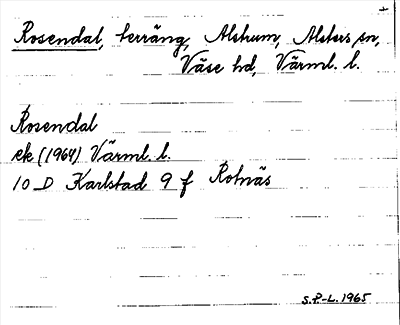 Rosendal, terräng, Alstrum, Alsters sn,
Väse hd, Värml. l.
Rosendal
ek (1964) Värml. l.
10 D Karlstad 9 f Rotnäs
S.P-L. 1965